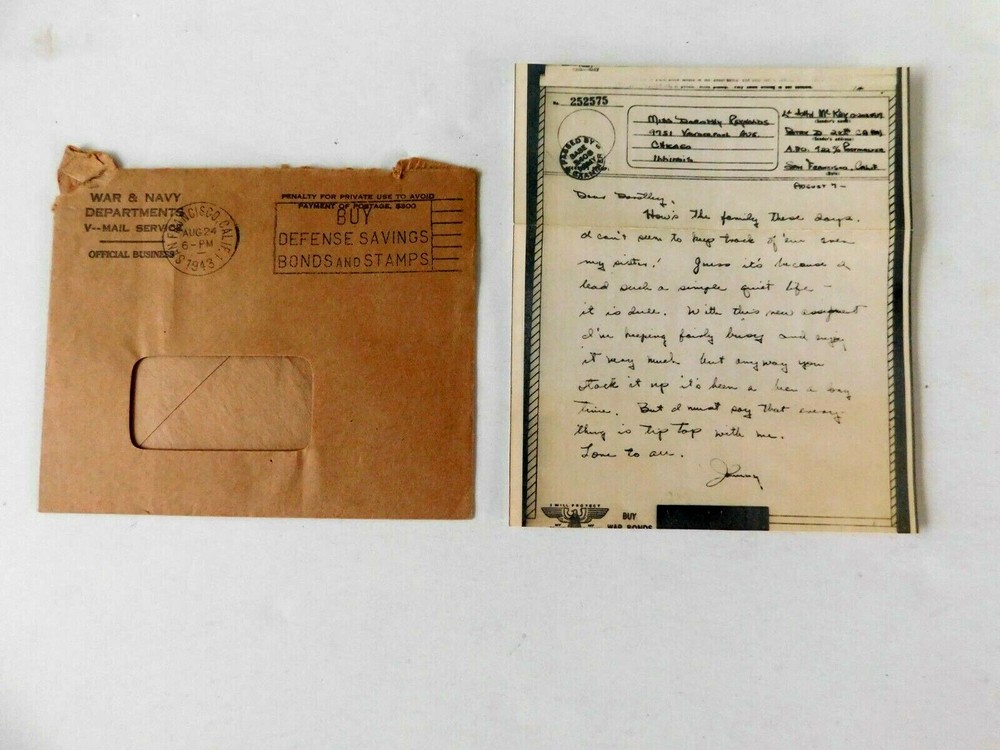 WAR & NAVY
DEPARTMENTS
V--MAIL SERVICE
OFFICIAL BUSINESS
SAN FRANCISCO CALIF.
AUG 24
6-PM
1943
PENALTY FOR PRIVATE USE TO AVOID
PAYMENT OF POSTAGE, $300
BUY
DEFENSE SAVINGS
BONDS AND STAMPS
252575
PASSED BY
BASE
ARMY
EXAMINER
MISS DOROTHY REYNOLDS
AVE.
CHICAGO
ILLINOIS
LT JOHN
(Sender's name)
BTRY D
(Sender's address)
A.P.O. % POSTMASTER
SAN FRANCISCO, CALIF.
AUGUST 7 -
Dear Dorothy,
How's the family these days.
I can't seem to keep track of 'em even
my sister! Guess it's because I
lead such a simple quiet life -
it is dull. With this new assignment
I'm keeping fairly busy and enjoy
it very much but anyway you
stack it up it's been a long
time. But I must say that every
thing is tip top with me.
Love to all.
Johnny
I WILL PROTECT
BUY
WAR BONDS